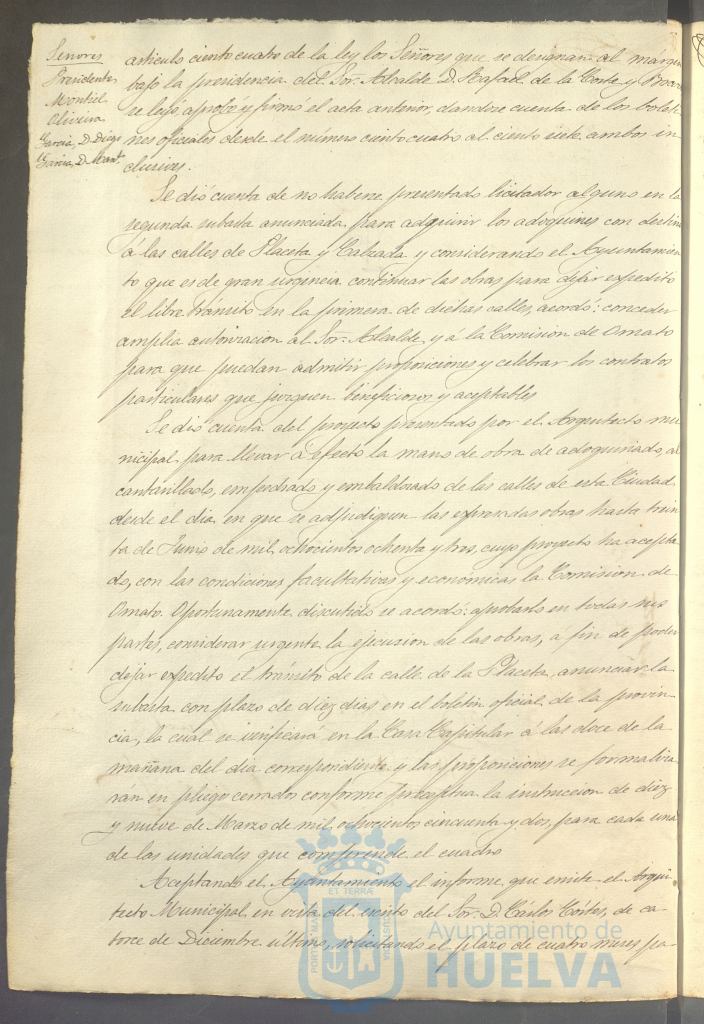 Señores
Presidente
Montiel
Oliveira
Garcia, D. Diego
Garcia, D. Man.l
articulo ciento cuatro de la ley los Señores que se designan al márgen
bajo la presidencia del Sor. Alcalde D. Rafael de la Corte y
se leyó, aprobó y firmó el acta anterior, dandose cuenta de los boleti-
nes oficiales desde el número ciento cuatro al ciento siete ambos in-
clusives.
Se dió cuenta de no haberse presentado licitador alguno en la
segunda subasta anunciada para adquirir los adoquines con destino
á las calles de Placeta y Calzada y considerando el Ayuntamien-
to que es de gran urgencia continuar las obras para dejar expedito
el libre tránsito en la primera de dichas calles, acordó: conceder
amplia autorizacion al Sor. Alcalde, y á la Comision de Ornato
para que puedan admitir proposiciones y celebrar los contratos
particulares que juzguen beneficiosos y aceptables
Se dió cuenta del proyecto presentado por el Arquitecto mu-
nicipal para llevar á efecto la mano de obra de adoquinado, al-
cantarillado, empedrado y embaldosado de las calles de esta Ciudad
desde el dia en que se adjudiquen las expresadas obras hasta trein-
ta de Junio de mil ochocientos ochenta y tres, cuyo proyecto ha acepta-
do, con las condiciones facultativas y económicas la Comision de
Ornato. Oportunamente discutido se acordó: aprobarlo en todas sus
partes, considerar urgente la ejecuzion de las obras, á fin de poder
dejar expedito el tránsito de la calle de la Placeta, anunciar la
subasta con plazo de diez dias en el boletin oficial de la provin-
cia, la cual se verificará en la Casa Capitular á las doce de la
mañana del dia correspondiente y las proposiciones se formaliza-
rán en pliegos cerrados conforme preceptua la instruccion de diez
y nueve de Marzo de mil ochocientos cincuenta y dos, para cada una
de las unidades que comprende el cuadro
Aceptando el Ayuntamiento el informe que emite el Arqui-
tecto Municipal en vista del escrito del Sor. D. Cárlos Córtes, de ca-
torce de Diciembre último, solicitando el plazo de cuatro meses pa-
Ayuntamiento de
HUELVA